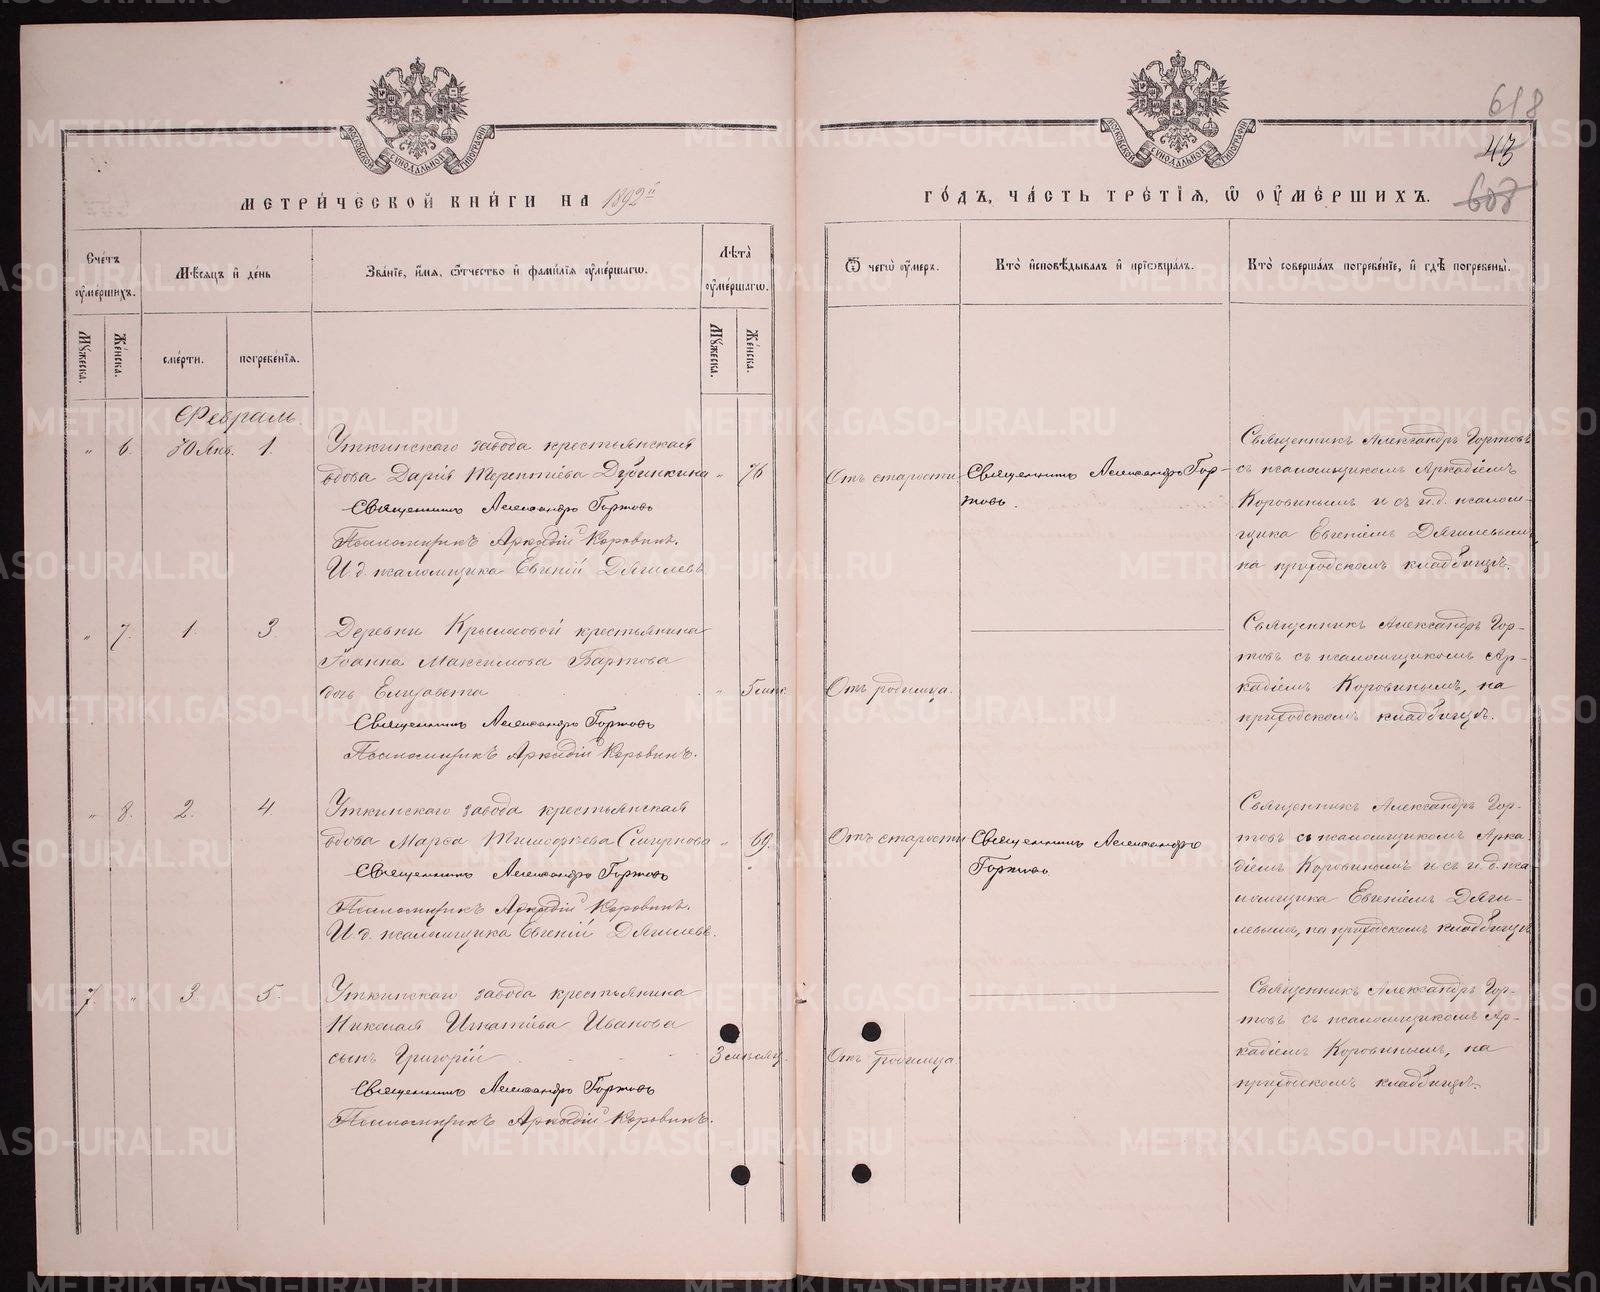 618
43
608
МОСКОВСКОЙ СУНОДАЛЬНОЙ ТИПОГРАФІИ
МОСКОВСКОЙ СУНОДАЛЬНОЙ ТИПОГРАФІИ
МЕТРИ́ЧЕСКОЙ КНИ́ГИ НА 1892й
ГО́ДЪ, ЧА́СТЬ ТРЕ́ТІЯ, Ѡ ОУМЕ́РШИХЪ.
Сче́тъ оуме́ршихъ.
Мѣ́сяцъ и де́нь
Зва́ніе, и́мя, ѻ҆́тчество и фами́лія оуме́ршагѡ.
Лѣта̀ оуме́ршагѡ.
Ѿ чегѡ̀ оу́меръ.
Кто̀ исповѣ́дывалъ и пріѡбща́лъ.
Кто̀ соверша́лъ погребе́ніе, и гдѣ̀ погребены̀.
Мꙋ́жеска.
Же́нска.
сме́рти.
погребе́нія.
Мꙋ́жеска.
Же́нска.
Февраль.
" 6. 30 Янв. 1. Уткинскаго завода крестьянская
вдова Дарія Терентіева Дубинкина " 76
Священникъ Александръ Гортовъ
Псаломщикъ Аркадій Коровинъ.
И. д. псаломщика Евгеній Дягилевъ
Отъ старости
Священникъ Александръ Гор-
товъ.
Священникъ Александръ Гортовъ
съ псаломщикомъ Аркадіемъ
Коровинымъ и съ и.д. псалом-
щика Евгеніемъ Дягилевымъ,
на приходскомъ кладбищѣ.
" 7. 1. 3. Деревни Крыласовой крестьянина
Іоанна Максимова Бартова
дочь Елизавета " 5 мѣс.
Священникъ Александръ Гортовъ
Псаломщикъ Аркадій Коровинъ.
Отъ родимца.
Священникъ Александръ Гор-
товъ съ псаломщикомъ Ар-
кадіемъ Коровинымъ, на
приходскомъ кладбищѣ.
" 8. 2. 4. Уткинскаго завода крестьянская
вдова Марѳа Тимофѣева Смирнова " 69.
Священникъ Александръ Гортовъ
Псаломщикъ Аркадій Коровинъ.
И. д. псаломщика Евгеній Дягилевъ.
Отъ старости
Священникъ Александръ
Гортовъ
Священникъ Александръ Гор-
товъ съ псаломщикомъ Арка-
діемъ Коровинымъ и съ и. д. пса-
ломщика Евгеніемъ Дяги-
левымъ, на приходскомъ кладбищѣ
7. " 3. 5. Уткинскаго завода крестьянина
Николая Игнатіева Иванова
сынъ Григорій 3 мѣсяц.
Священникъ Александръ Гортовъ
Псаломщикъ Аркадій Коровинъ.
Отъ родимца.
Священникъ Александръ Гор-
товъ съ псаломщикомъ Ар-
кадіемъ Коровинымъ, на
приходскомъ кладбищѣ.
METRIKI.GASO-URAL.RU